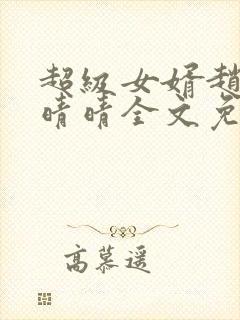 超级女婿趙
晴晴全文免
高慕遥